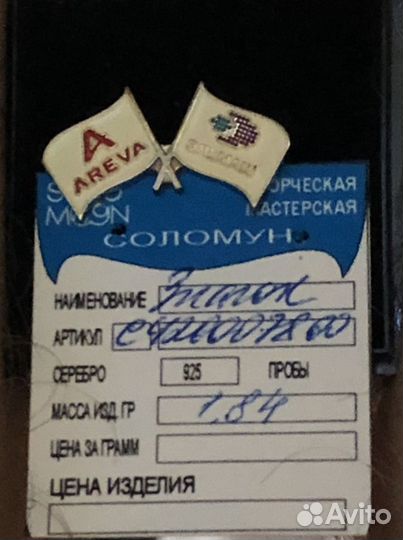 AREVA
MOON
ТВОРЧЕСКАЯ
МАСТЕРСКАЯ
СОЛОМУН
НАИМЕНОВАНИЕ Значок
АРТИКУЛ
СЕРЕБРО 925 ПРОБЫ
МАССА ИЗД. ГР 1,84
ЦЕНА ЗА ГРАММ
ЦЕНА ИЗДЕЛИЯ
Avito